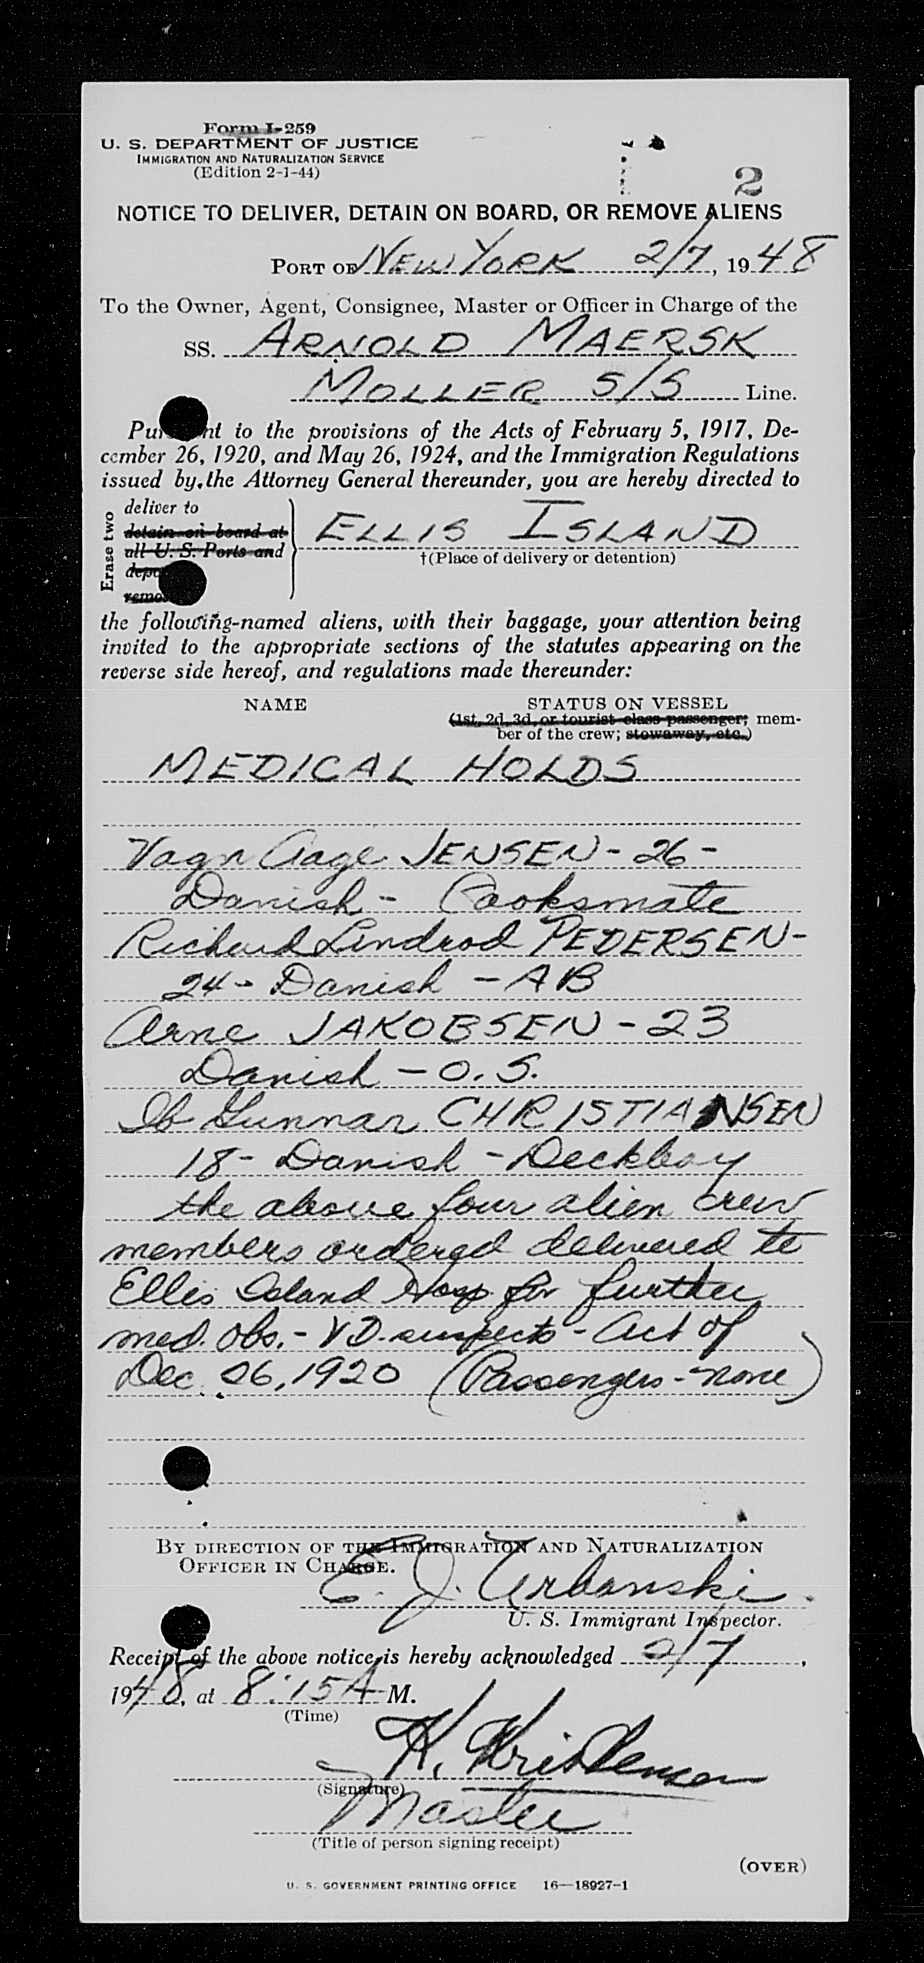 Form I-259
U. S. DEPARTMENT OF JUSTICE
IMMIGRATION AND NATURALIZATION SERVICE
(Edition 2-1-44)
2
NOTICE TO DELIVER, DETAIN ON BOARD, OR REMOVE ALIENS
PORT OF NEW YORK 2/7, 1948
To the Owner, Agent, Consignee, Master or Officer in Charge of the
SS. ARNOLD MAERSK
MOLLER S/S Line.
Pursuant to the provisions of the Acts of February 5, 1917, De-
cember 26, 1920, and May 26, 1924, and the Immigration Regulations
issued by the Attorney General thereunder, you are hereby directed to
Erase two
deliver to
detain on board at
all U. S. Ports and
ELLIS ISLAND
†(Place of delivery or detention)
the following-named aliens, with their baggage, your attention being
invited to the appropriate sections of the statutes appearing on the
reverse side hereof, and regulations made thereunder:
NAME STATUS ON VESSEL
(1st, 2d, 3d, or tourist class passenger; mem-
ber of the crew; stowaway, etc.)
MEDICAL HOLDS
Vagn Aage JENSEN - 26 -
Danish - Cooksmate
Richard Lindrod PEDERSEN -
24 - Danish - AB
Arne JAKOBSEN - 23
Danish - O.S.
Ib Gunnar CHRISTIANSEN
18 - Danish - Deckboy
the above four alien crew
members ordered delivered to
Ellis Island Hosp. for further
med. obs. - VD suspects - Act of
Dec. 26, 1920 (Passengers - none)
BY DIRECTION OF THE IMMIGRATION AND NATURALIZATION
OFFICER IN CHARGE.
E. J. Urbanski
U. S. Immigrant Inspector.
Receipt of the above notice is hereby acknowledged 2/7,
1948, at 8:15 A M.
(Time)
K. Kristensen
(Signature)
Master
(Title of person signing receipt)
(OVER)
U. S. GOVERNMENT PRINTING OFFICE 16—18927-1